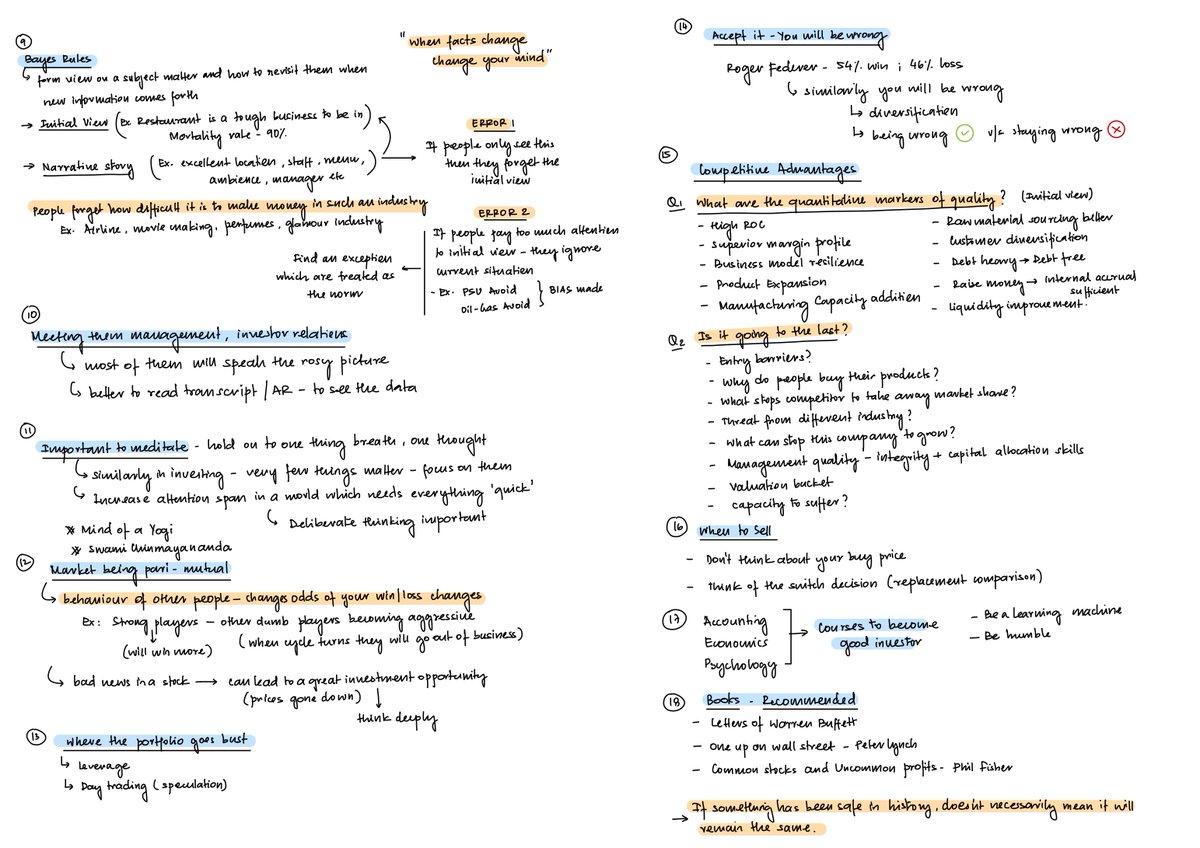 9
Bayes Rules
"When facts change
change your mind"
↳ form view on a subject matter and how to revisit them when
new information comes forth
→ Initial View (Ex Restaurant is a tough business to be in)
Mortality rate - 90%
→ Narrative story (Ex. excellent location, staff, menu,
ambience, manager etc)
ERROR 1
If people only see this
then they forget the
initial view
People forget how difficult it is to make money in such an industry
Ex. Airline, movie making, perfumes, glamour industry
ERROR 2
If people pay too much attention
to initial view - they ignore
current situation
- Ex. PSU Avoid
Oil-Gas Avoid } BIAS made
Find an exception
which are treated as
the norm
10
Meeting them management, investor relations
↳ most of them will speak the rosy picture
↳ better to read transcript / AR - to see the data
11
Important to meditate - hold on to one thing breath, one thought
↳ similarly in investing - very few things matter - focus on them
↳ Increase attention span in a world which needs everything 'quick'
↳ Deliberate thinking important
* Mind of a Yogi
* Swami Chinmayananda
12
Market being pari-mutual
↳ behaviour of other people - changes odds of your win/loss changes
Ex: Strong players - other dumb players becoming aggressive
(will win more) (when cycle turns they will go out of business)
↳ bad news in a stock → can lead to a great investment opportunity
(prices gone down)
think deeply
13
Where the portfolio goes bust
↳ leverage
↳ Day trading (speculation)
14
Accept it - You will be wrong
Roger Federer - 54% win ; 46% loss
↳ similarly you will be wrong
↳ diversification
↳ being wrong ✓ v/s staying wrong ✗
15
Competitive Advantages
Q1 What are the quantitative markers of quality? (Initial view)
- High ROC
- Superior margin profile
- Business model resilience
- Product Expansion
- Manufacturing Capacity addition
- Raw material sourcing better
- Customer diversification
- Debt heavy → Debt free
- Raise money → internal accrual
sufficient
- liquidity improvement.
Q2 Is it going to the last?
- Entry barriers?
- Why do people buy their products?
- What stops competitor to take away market share?
- Threat from different industry?
- What can stop this company to grow?
- Management quality - integrity + capital allocation skills
- Valuation bucket
- capacity to suffer?
16
When to Sell
- Don't think about your buy price
- think of the switch decision (replacement comparison)
17
Accounting
Economics
Psychology
→ Courses to become
good investor
- Be a learning machine
- Be humble
18
Books - Recommended
- Letters of Warren Buffett
- One up on wall street - Peter Lynch
- Common stocks and Uncommon profits - Phil Fisher
→ If something has been safe in history, doesn't necessarily mean it will
remain the same.